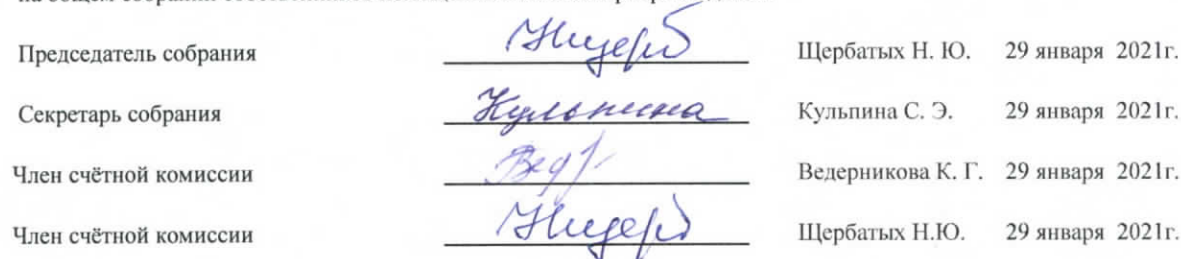 на общем собрании собственников
Председатель собрания Щербатых Н. Ю. 29 января 2021г.
Секретарь собрания Кульпина Кульпина С. Э. 29 января 2021г.
Член счётной комиссии Вед Ведерникова К. Г. 29 января 2021г.
Член счётной комиссии Щербатых Н.Ю. 29 января 2021г.